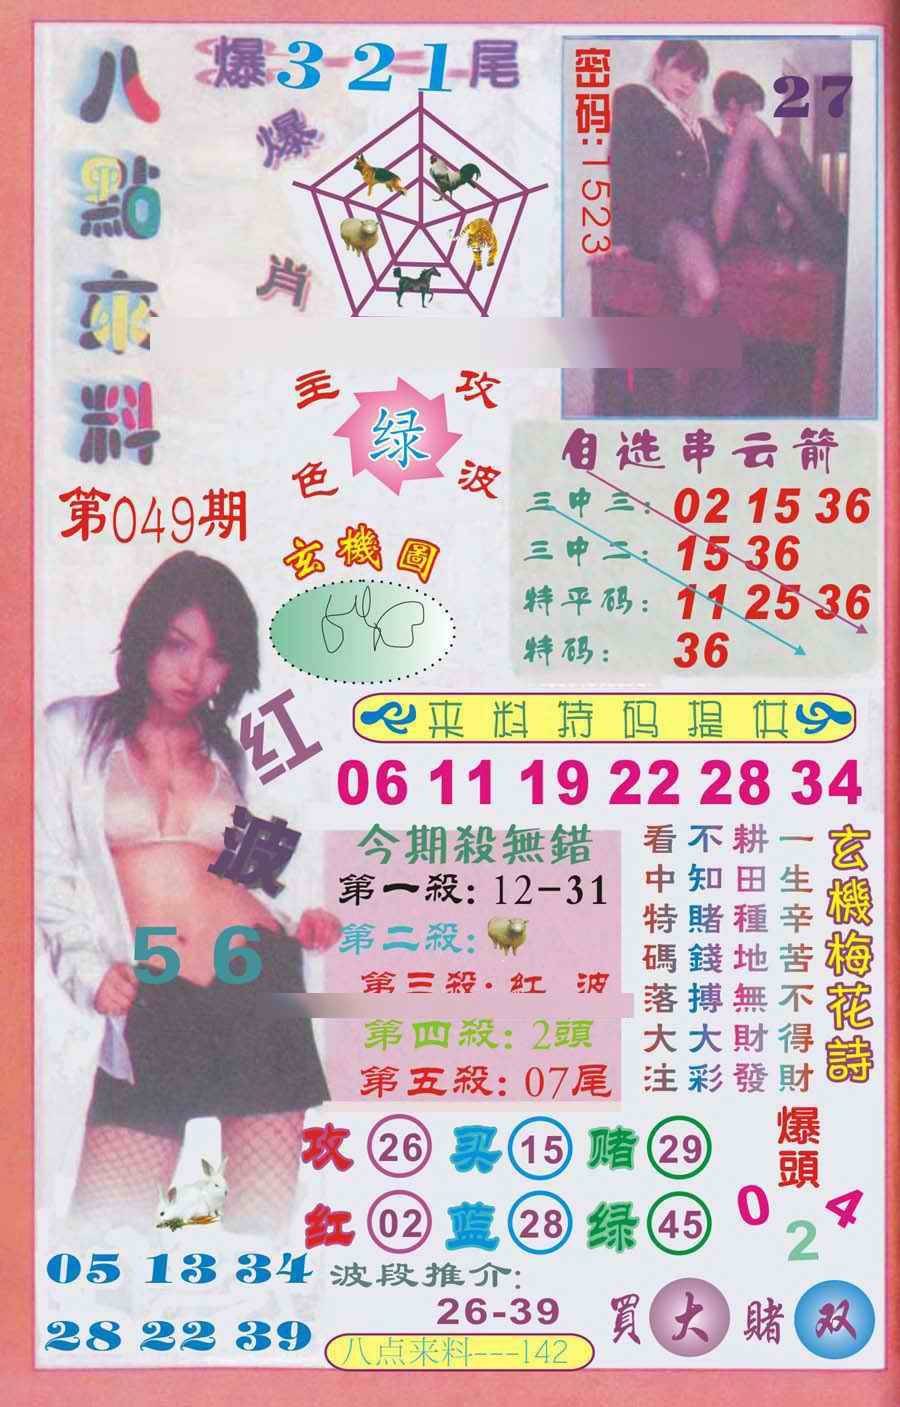 八點來料
爆321尾
爆肖
密码:1523
27
主攻
绿
色波
第049期
玄機圖
自选串云箭
三中三: 02 15 36
三中二: 15 36
特平码: 11 25 36
特码: 36
红波
56
来料特码提供
06 11 19 22 28 34
今期殺無錯
第一殺: 12-31
第二殺:
第三殺: 紅波
第四殺: 2頭
第五殺: 07尾
玄機梅花詩
一生辛苦不得財
耕田種地無財發
不知賭錢搏大彩
看中特碼落大注
攻 26 买 15 赌 29
红 02 蓝 28 绿 45
爆頭
0 2 4
05 13 34
28 22 39
波段推介:
26-39
買大賭双
八点来料---142